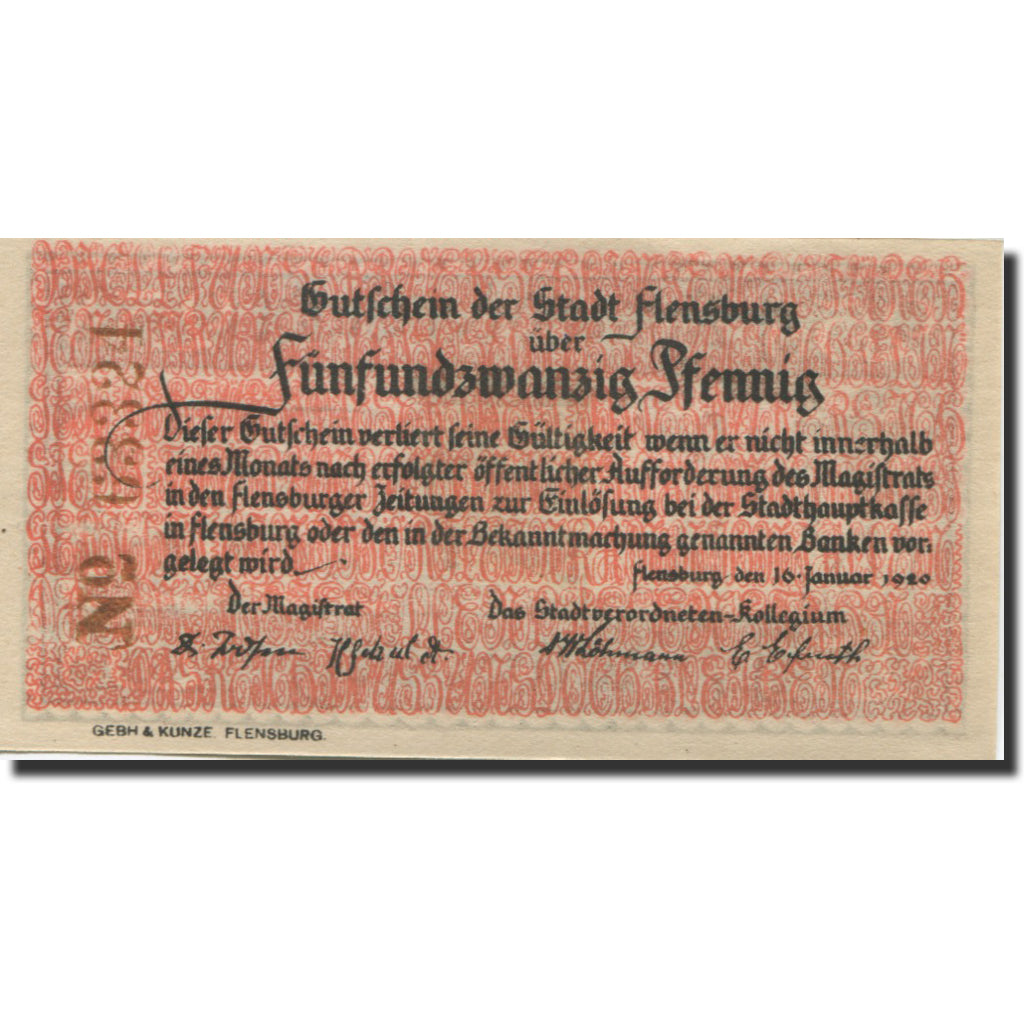 Gutschein der Stadt Flensburg
über
Fünfundzwanzig Pfennig
Dieser Gutschein verliert seine Gültigkeit wenn er nicht innerhalb
eines Monats nach erfolgter öffentlicher Aufforderung des Magistrats
in den Flensburger Zeitungen zur Einlösung bei der Stadthauptkasse
in Flensburg oder den in der Bekanntmachung genannten Banken vor:
gelegt wird.
Flensburg den 16. Januar 1920
Der Magistrat
Das Stadtverordneten-Kollegium
No 123324
GEBH & KUNZE. FLENSBURG.